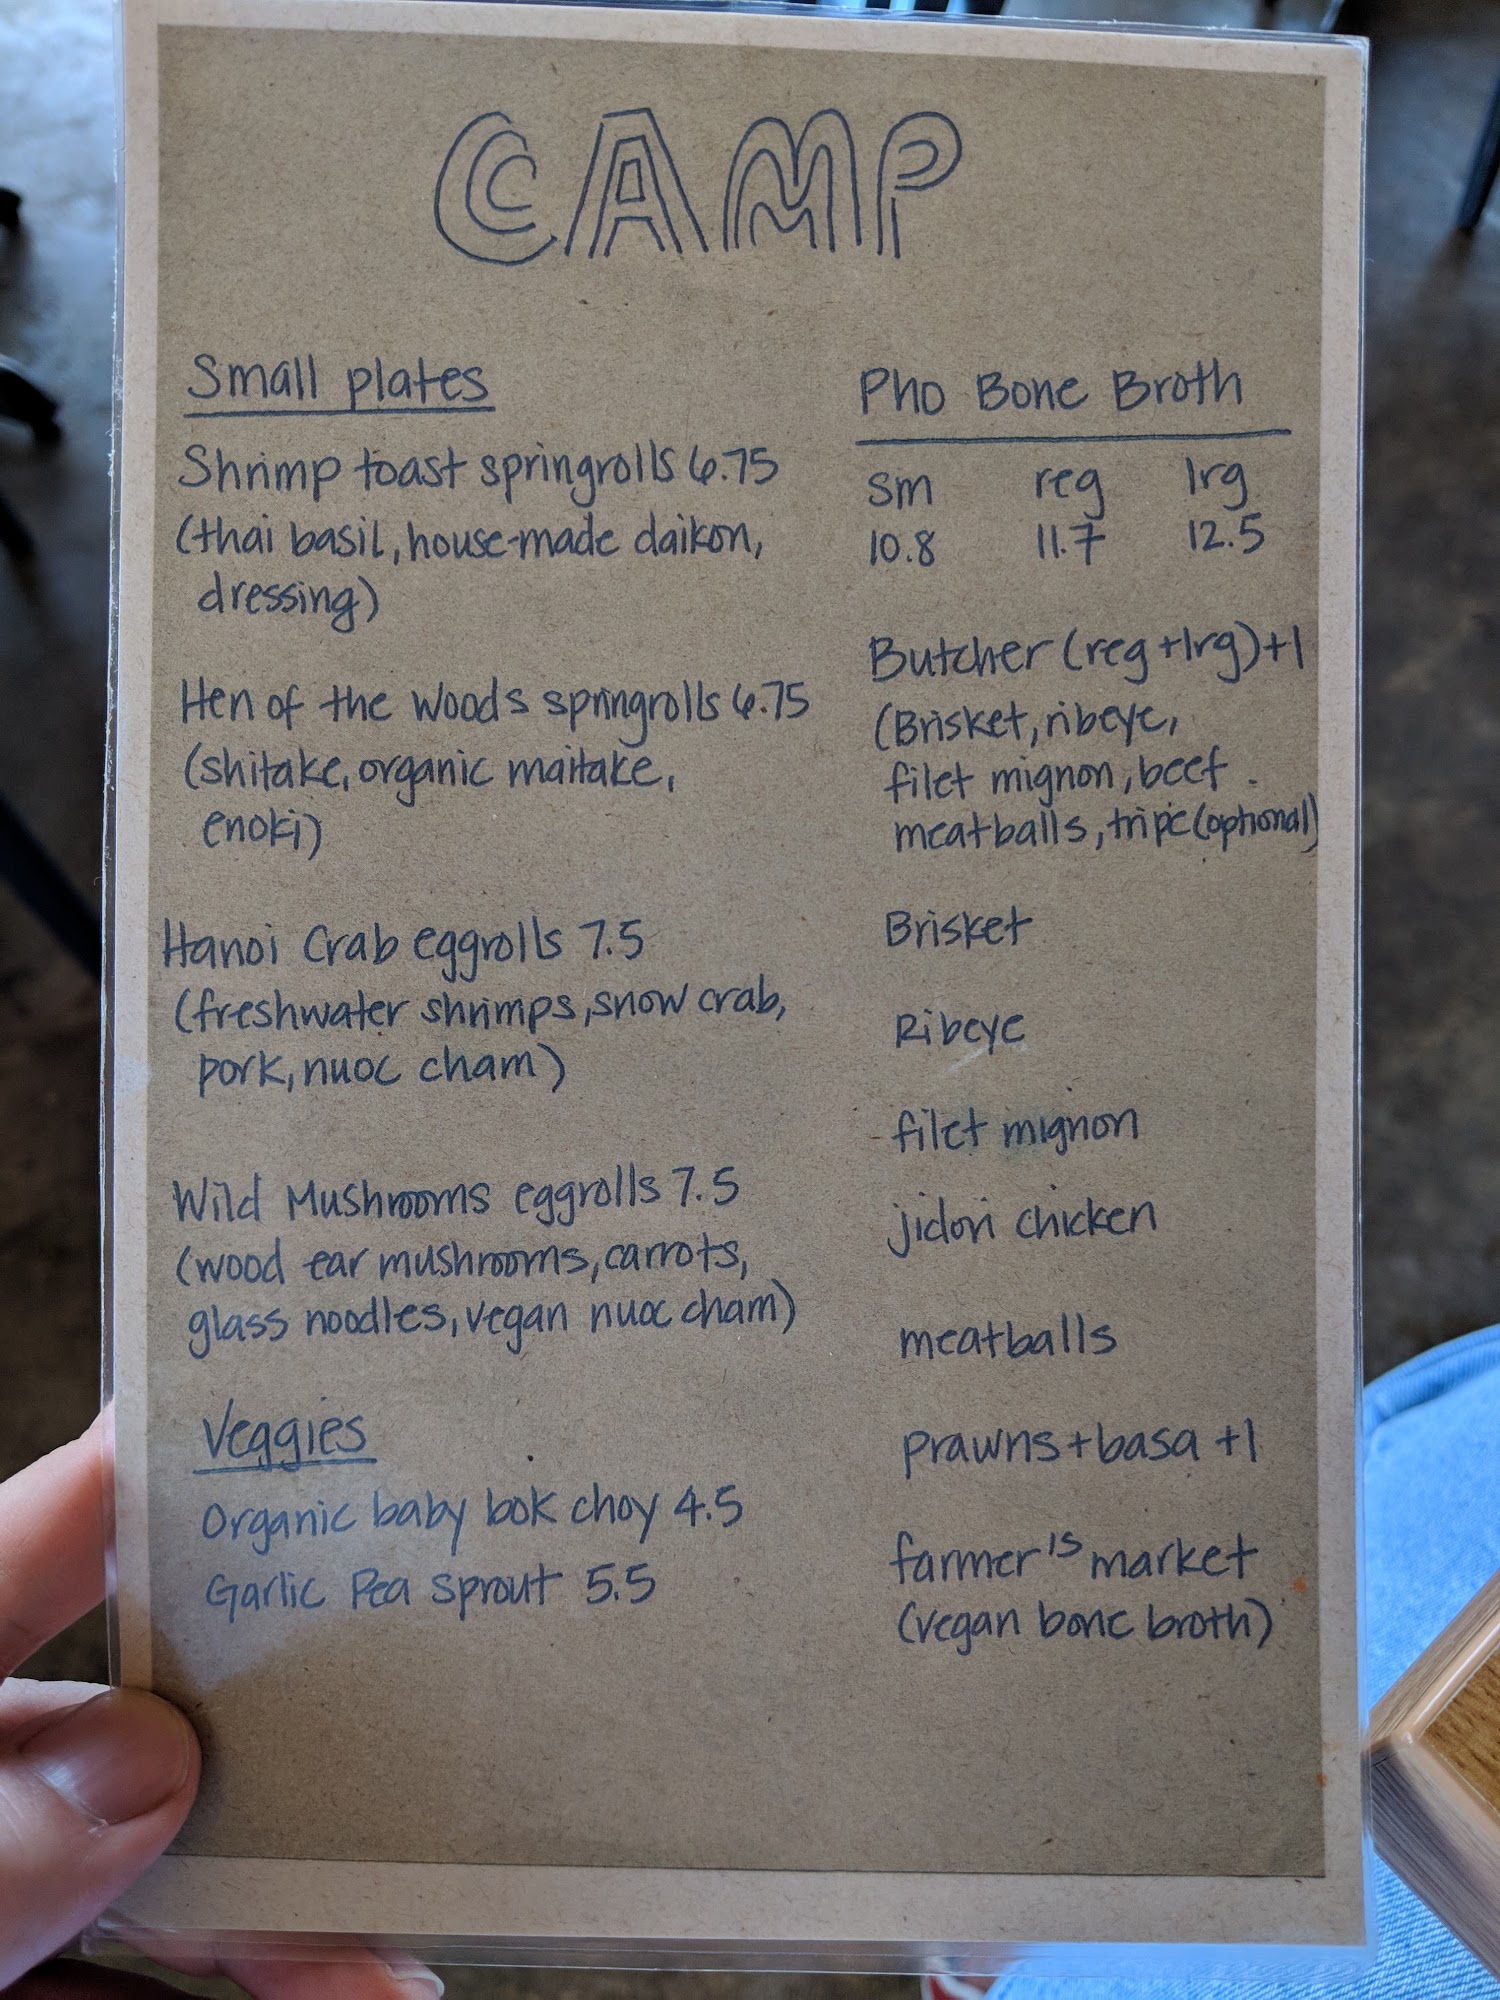 CAMP
Small plates
Shrimp toast springrolls 6.75
(thai basil, house-made daikon,
dressing)
Hen of the Woods springrolls 6.75
(shitake, organic maitake,
enoki)
Hanoi Crab eggrolls 7.5
(freshwater shrimps, snow crab,
pork, nuoc cham)
Wild Mushrooms eggrolls 7.5
(wood ear mushrooms, carrots,
glass noodles, vegan nuoc cham)
Veggies
Organic baby bok choy 4.5
Garlic Pea sprout 5.5
Pho Bone Broth
sm reg lrg
10.8 11.7 12.5
Butcher (reg + lrg) +1
(Brisket, ribeye,
filet mignon, beef
meatballs, tripe (optional)
Brisket
Ribeye
filet mignon
jidori chicken
meatballs
prawns + basa +1
farmer's market
(vegan bone broth)